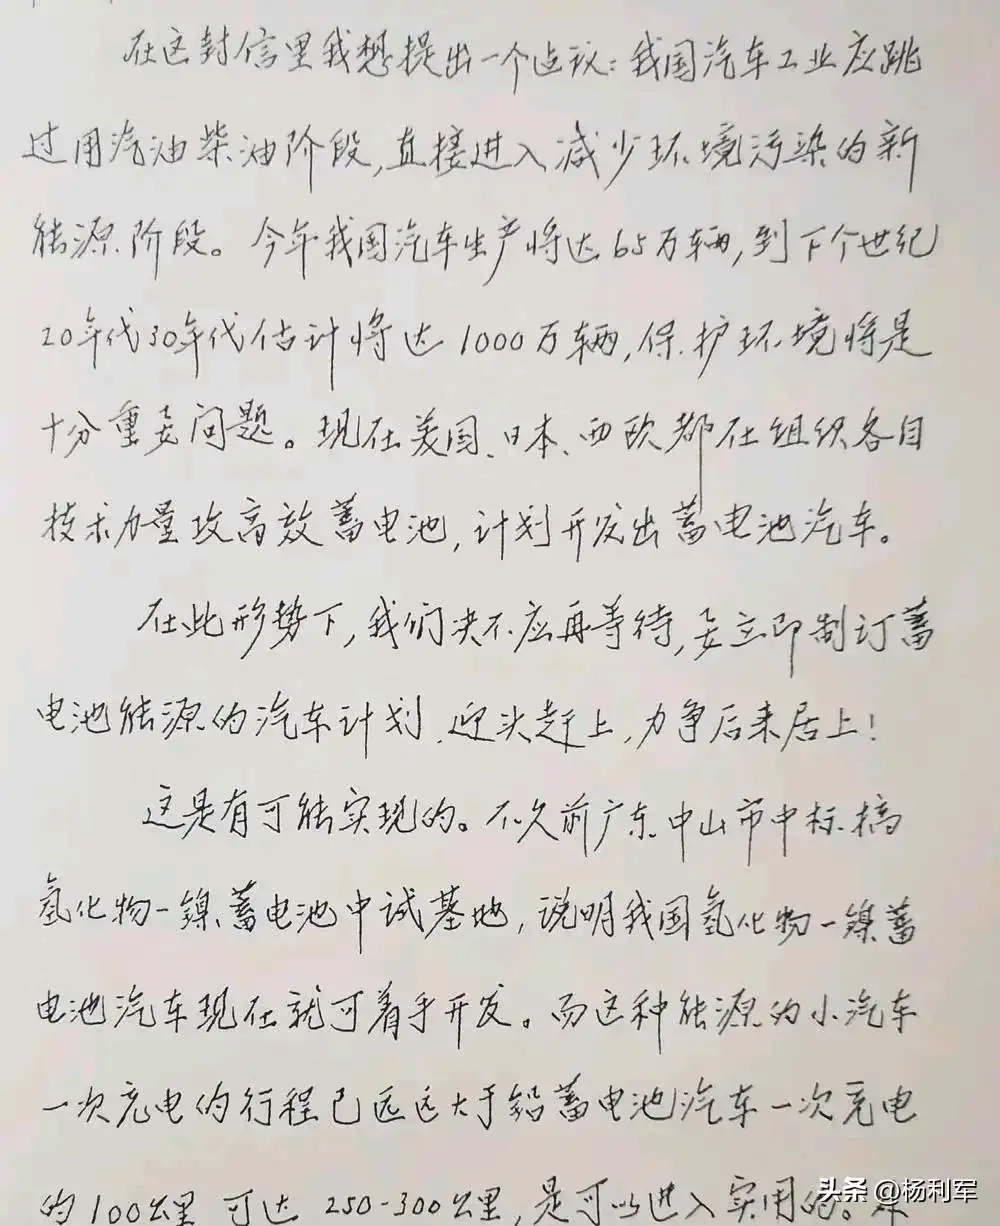 在这封信里我想提出一个建议：我国汽车工业应跳
过用汽油柴油阶段,直接进入减少环境污染的新
能源阶段。今年我国汽车生产将达65万辆,到下个世纪
20年代30年代估计将达1000万辆,保护环境将是
十分重要问题。现在美国、日本、西欧都在组织各自
技术力量攻高效蓄电池,计划开发出蓄电池汽车。
在此形势下,我们决不应再等待,要立即制订蓄
电池能源的汽车计划,迎头赶上,力争后来居上!
这是有可能实现的。不久前广东中山市中标搞
氢化物-镍蓄电池中试基地,说明我国氢化物-镍蓄
电池汽车现在就可着手开发。而这种能源的小汽车
一次充电的行程已远远大于铅蓄电池汽车一次充电
的100公里 可达 250-300公里,是可以进入实用的。
头条@杨利军